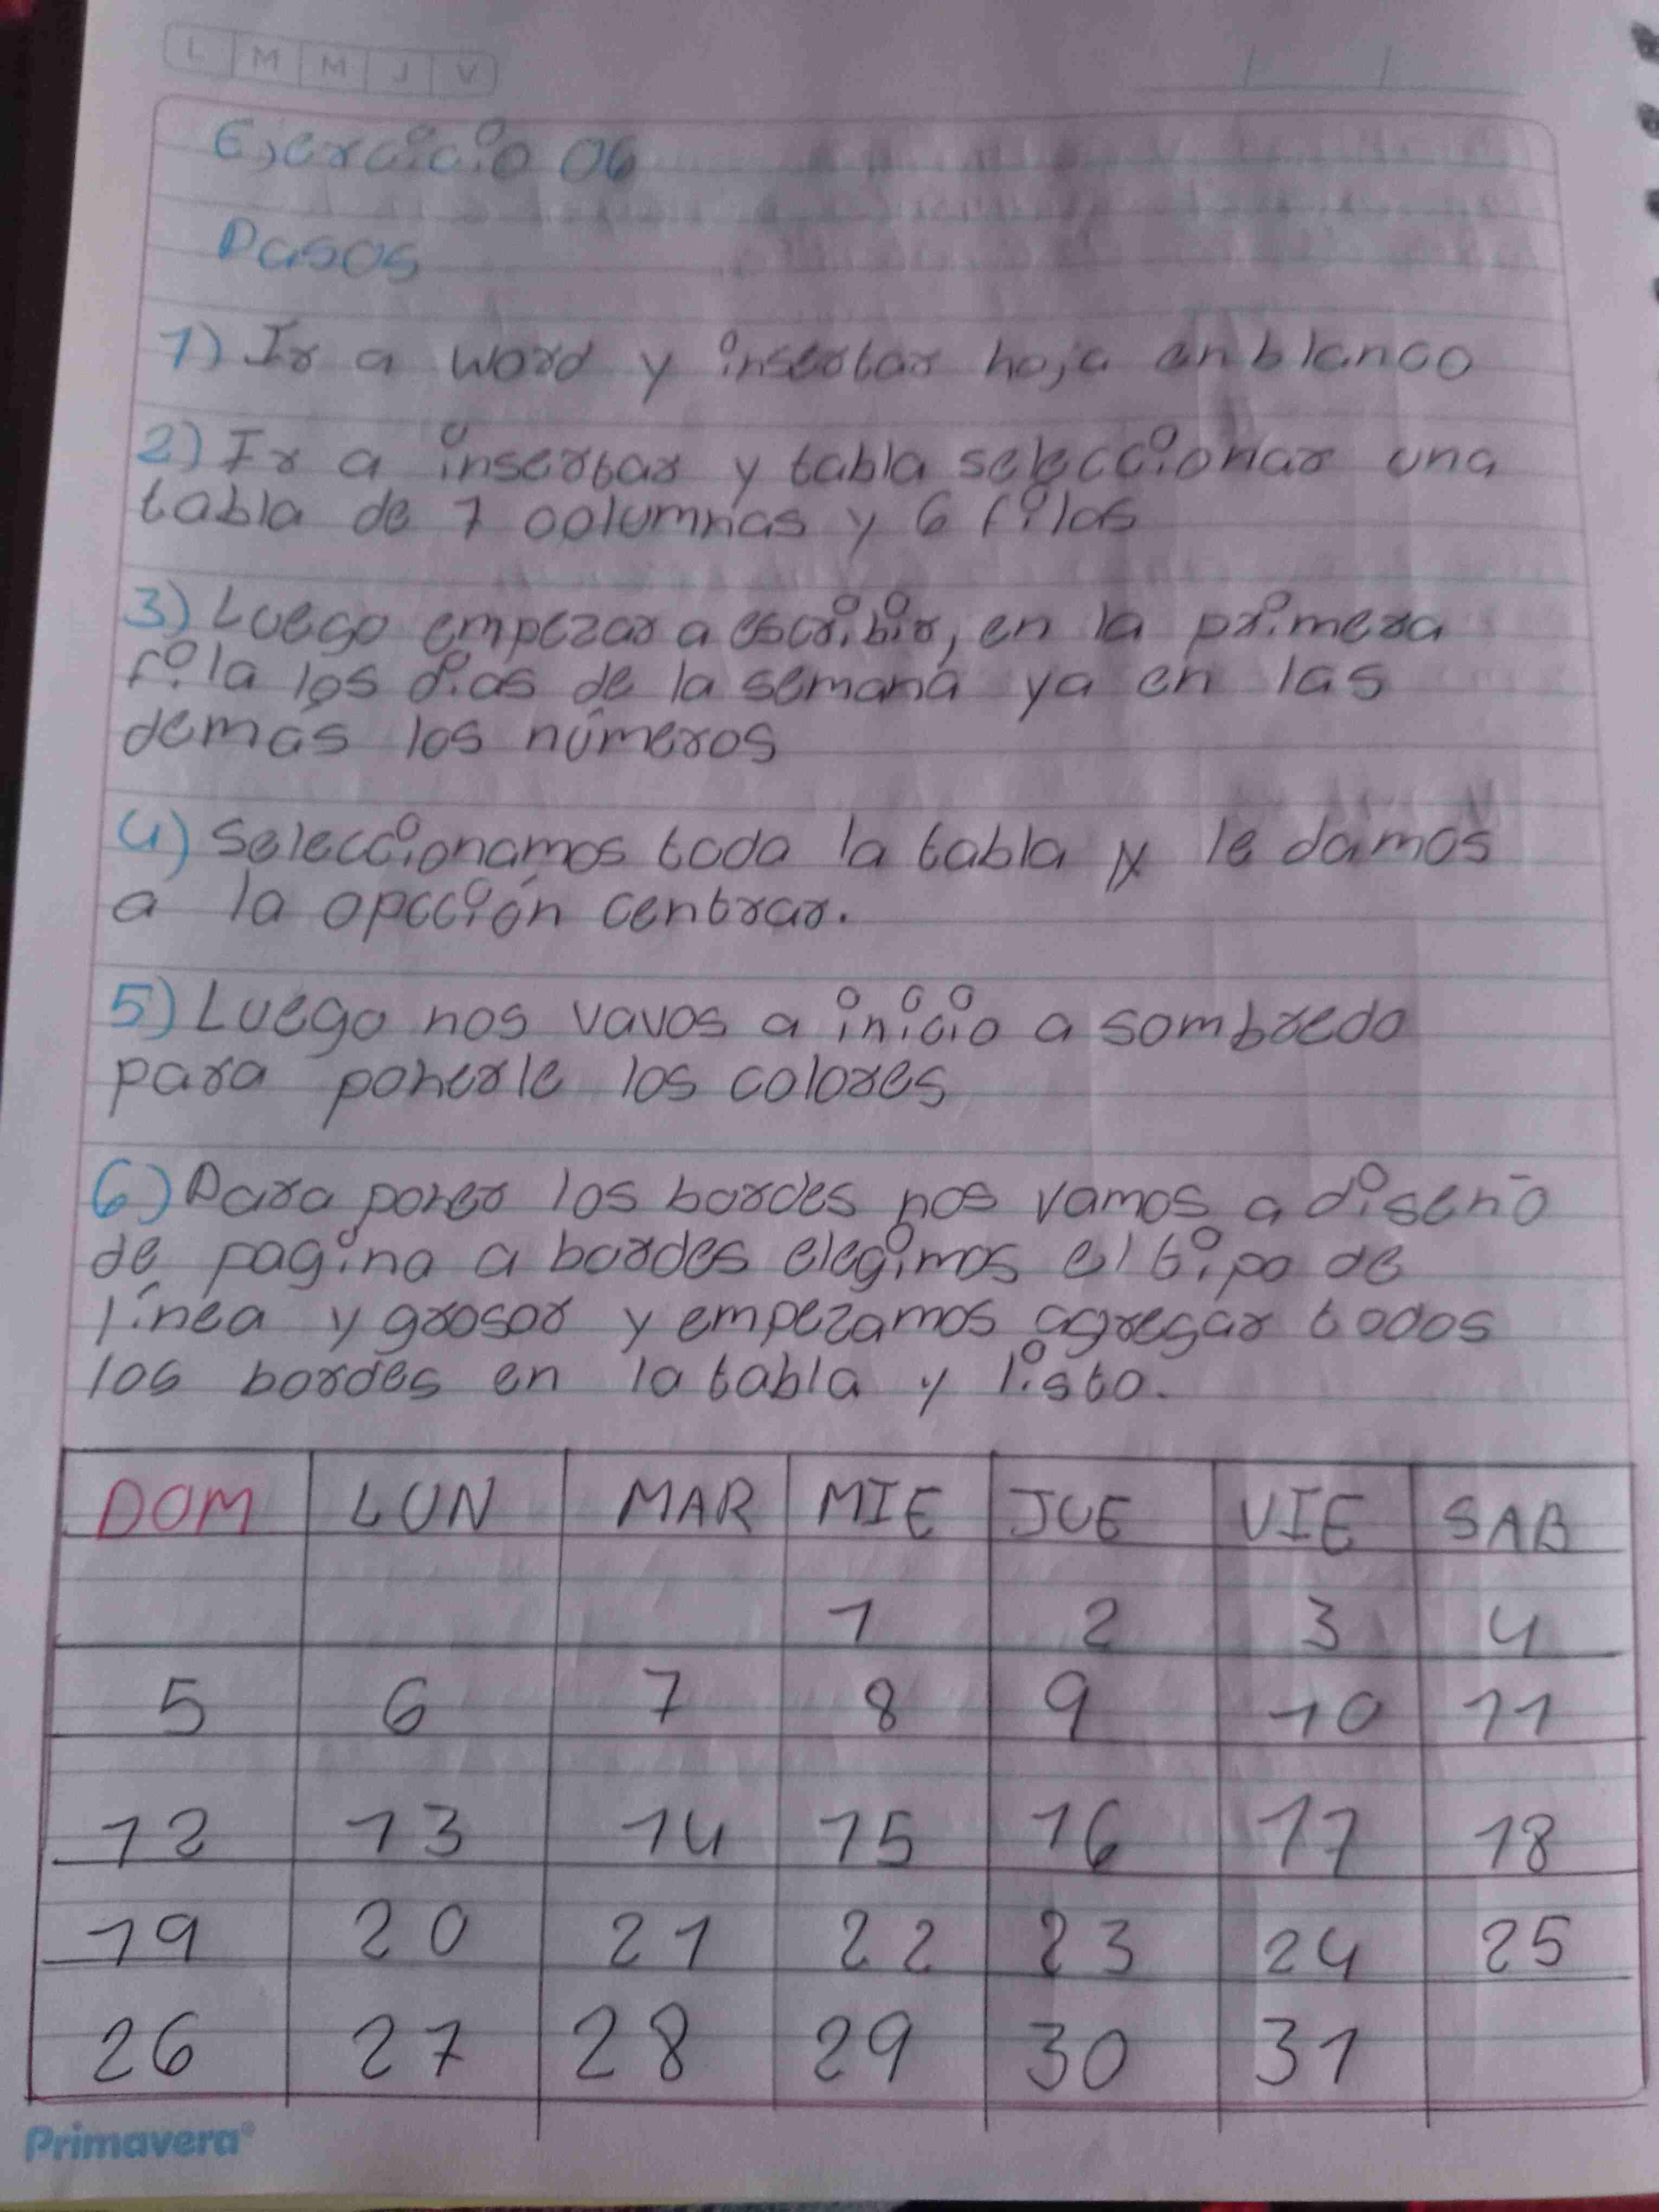 L M M J V
Ejercicio 06
Pasos
1) Ir a word y insertar hoja en blanco
2) Ir a insertar y tabla seleccionar una
tabla de 7 columnas y 6 filas
3) Luego empezar a escribir, en la primera
fila los dias de la semana ya en las
demás los números
4) Seleccionamos toda la tabla y le damos
a la opcción centrar.
5) Luego nos vavos a inicio a sombredo
para ponerle los colores
6) Para poner los bordes nos vamos a diseño
de pagina a bordes elegimos el tipo de
línea y grosor y empezamos agregar todos
los bordes en la tabla y listo.
DOM LUN MAR MIE JUE VIE SAB
1 2 3 4
5 6 7 8 9 10 11
12 13 14 15 16 17 18
19 20 21 22 23 24 25
26 27 28 29 30 31
Primavera